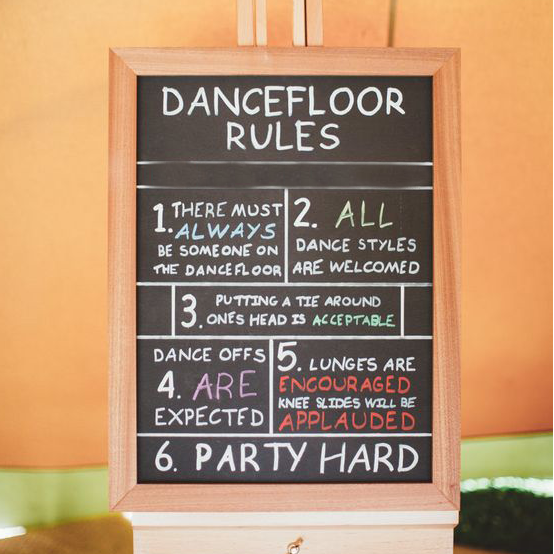 DANCEFLOOR
RULES
1. THERE MUST
ALWAYS
BE SOMEONE ON
THE DANCEFLOOR
2. ALL
DANCE STYLES
ARE WELCOMED
3. PUTTING A TIE AROUND
ONES HEAD IS ACCEPTABLE
DANCE OFFS
4. ARE
EXPECTED
5. LUNGES ARE
ENCOURAGED
KNEE SLIDES WILL BE
APPLAUDED
6. PARTY HARD